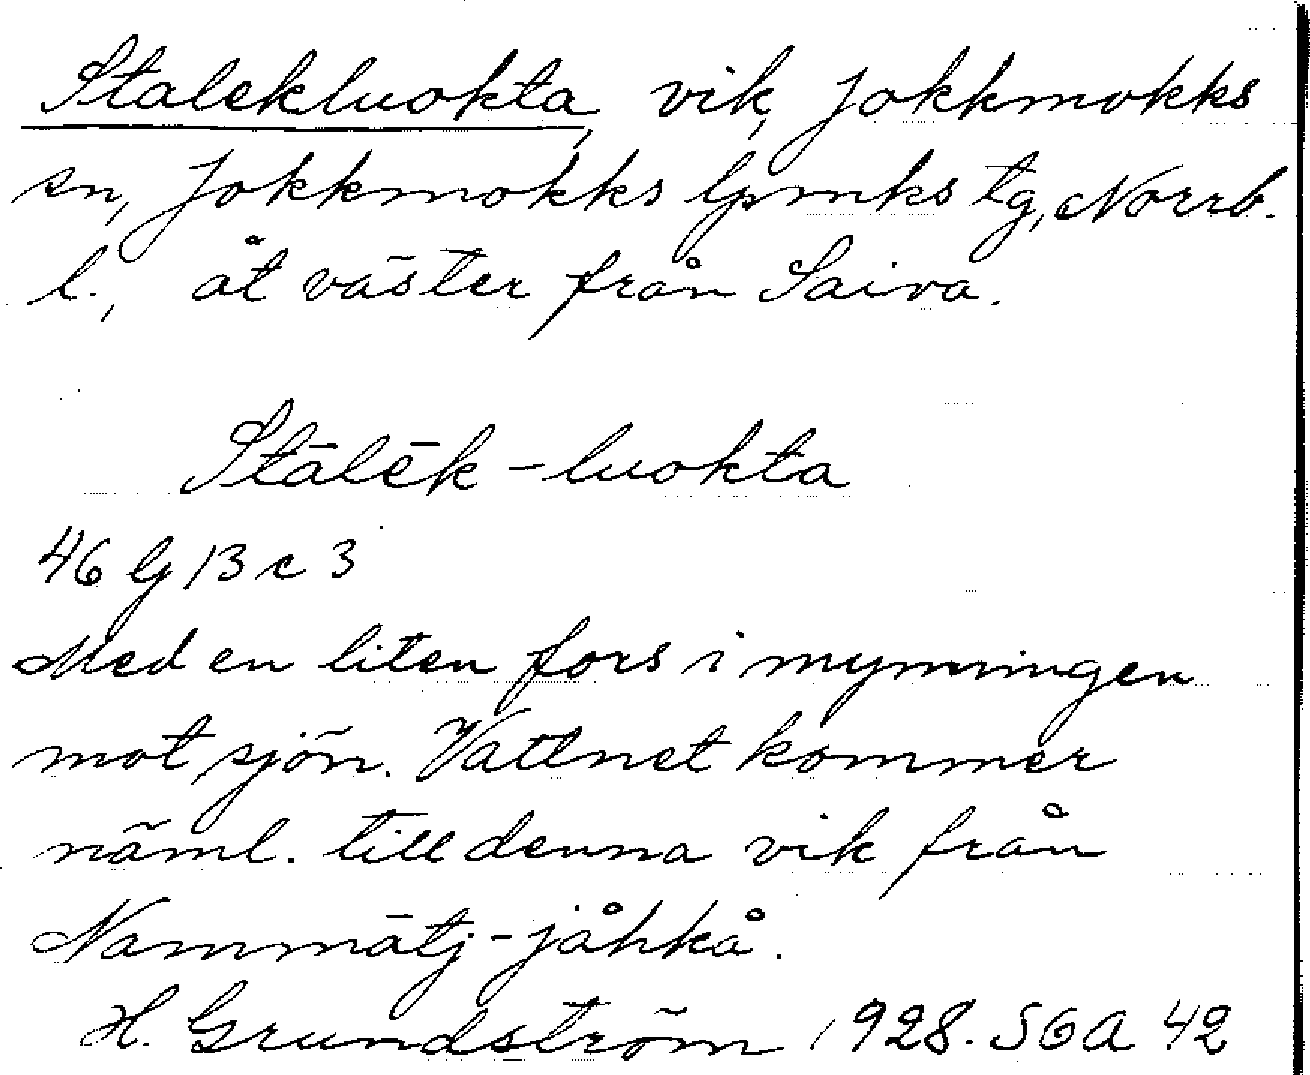 Stalekluokta, vik, Jokkmokks
sn, Jokkmokks lpmks tg, Norrb.
l., åt väster från Saiva.
Stālēk-luokta
46 G 13 c 3
Med en liten fors i mynningen
mot sjön. Vattnet kommer
näml. till denna vik från
Nammātj-jåhkå.
H. Grundström 1928. SOA 42